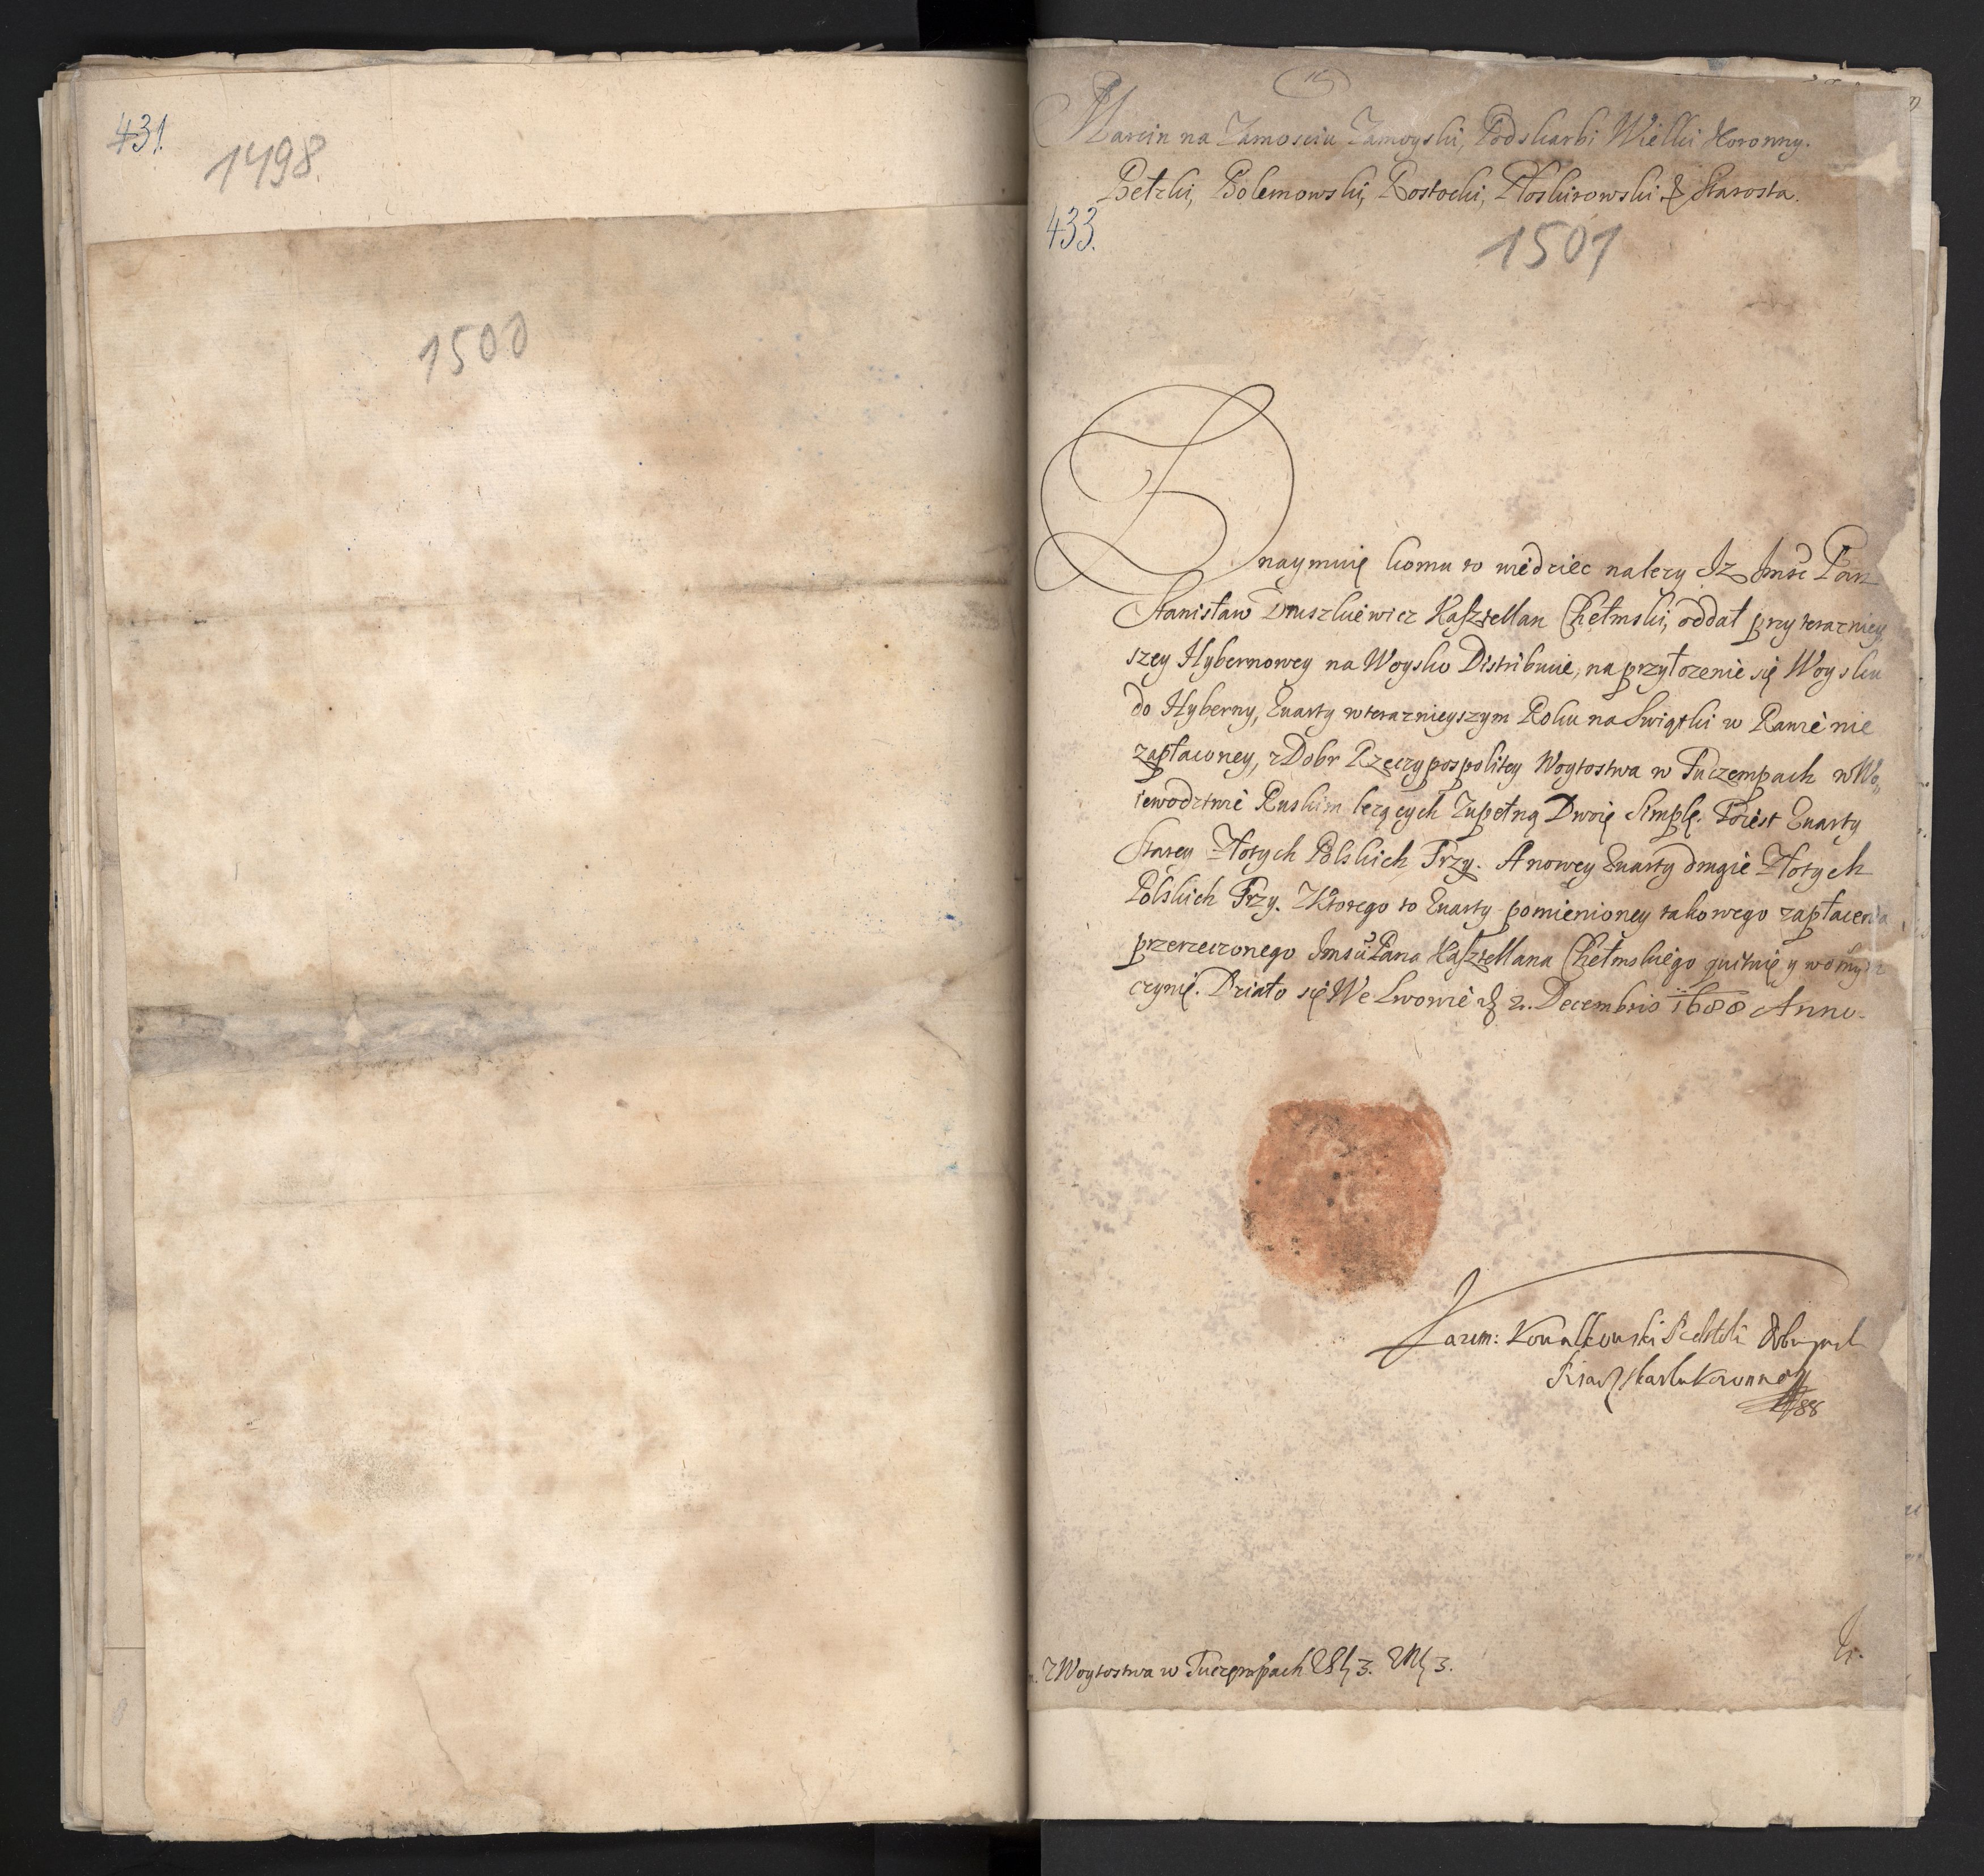 431.
1498.
1500
Marcin na Zamosciu Zamoyski, Podskarbi Wielki Koronny.
Bełzki, Bolemowski, Rostocki, Płoskirowski & Starosta.
433.
1501
Znaymuię komu to wiedziec nalezy Iz Imsc Pan
Stanisław Druszkiewicz Kasztellan Chełmski, oddał przy terazniey
szey Hybernowey na Woysko Distribucie, na przyłozenie się Woysku
do Hyberny, Kwarty w teraznieyszym Roku na Swiątki w Rawie nie
zapłaconey, z Dobr Rzeczypospolitey Woytostwa w Tuczempach w Wo„
iewodztwie Ruskim lezących Zupełną Dwoię Simplę. To iest Kwarty
Starey Złotych Polskich Trzy. A nowey Kwarty drugie Złotych
Polskich Trzy. Z Ktorego to Kwarty pomienioney takowego zapłacenia
przerzeczonego Imsci Pana Kasztellana Chełmskiego quituię y wolnym
czynię. Działo się We Lwowie d. 2. Decembris 1688 Anno.
Kazim: Kowalkowski
Skarbu Koronnego
88
z Woytostwa w Tuczempach 3. 3.